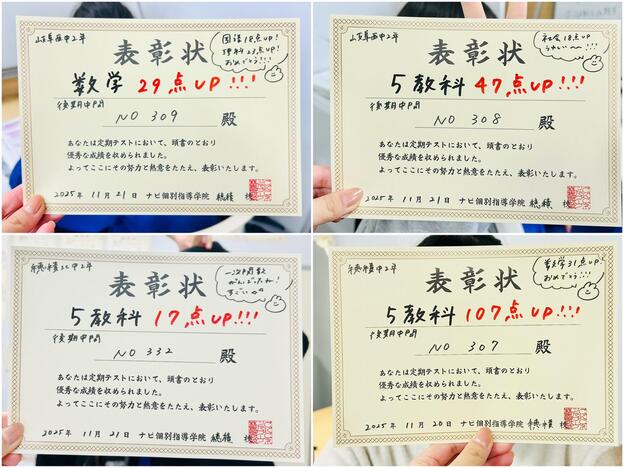 岐阜西中2年
国語18点up!
理科23点up!
おめでとう!!!
表彰状
数学 29点up!!!
後期中間
NO 309 殿
あなたは定期テストにおいて、頭書のとおり
優秀な成績を収められました。
よってここにその努力と熱意をたたえ、表彰いたします。
2025年 11月 21日 ナビ個別指導学院 穂積 校
岐阜西中2年
社会18点up
うれしい〜!!!
表彰状
5教科 47点up!!!
後期中間
NO 308 殿
あなたは定期テストにおいて、頭書のとおり
優秀な成績を収められました。
よってここにその努力と熱意をたたえ、表彰いたします。
2025年 11月 21日 ナビ個別指導学院 穂積 校
穂積北中2年
一次関数
がんばったね!
すごい
表彰状
5教科 17点up!!!
後期中間
NO 332 殿
あなたは定期テストにおいて、頭書のとおり
優秀な成績を収められました。
よってここにその努力と熱意をたたえ、表彰いたします。
2025年 11月 21日 ナビ個別指導学院 穂積 校
穂積中2年
数学31点up!
おめでとう!!!
表彰状
5教科 107点up!!!
後期中間
NO 307 殿
あなたは定期テストにおいて、頭書のとおり
優秀な成績を収められました。
よってここにその努力と熱意をたたえ、表彰いたします。
2025年 11月 20日 ナビ個別指導学院 穂積 校